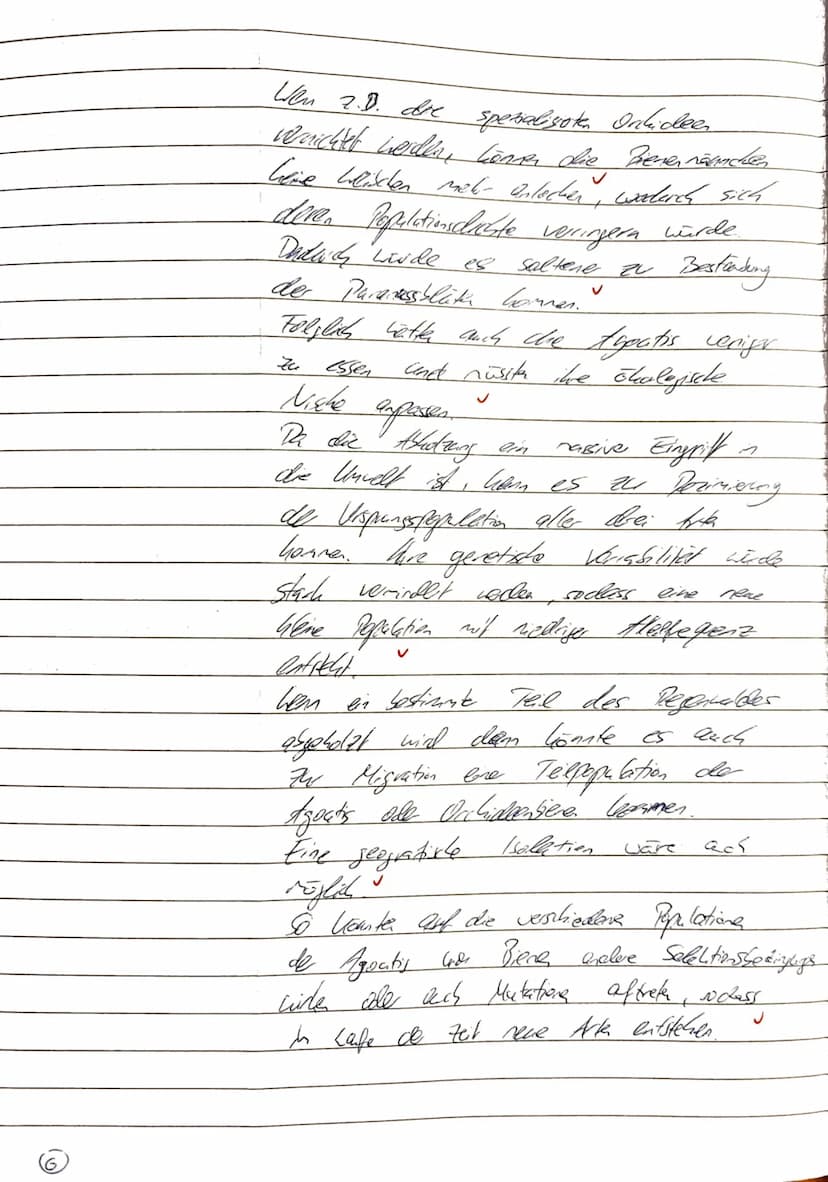 Wenn z.B. die spezialisierten Orchideen
vernichtet werden, können die Bienenmännchen
keine Weibchen mehr anlocken, wodurch sich
deren Populationsdichte verringern würde.
Dadurch würde es seltener zu Bestäubung
der Paranussblüten kommen.
Folglich hätten auch die Agoutis weniger
zu essen und müssten ihre ökologische
Nische anpassen.
Da die Abholzung ein massiver Eingriff in
die Umwelt ist, kann es zur Dezimierung
der Ursprungspopulation aller drei Arten
kommen. Ihre genetische Variabilität würde
stark vermindert werden, sodass eine neue
kleine Population mit niedriger Allelfrequenz
entsteht.
Wenn ein bestimmter Teil des Regenwaldes
abgeholzt wird dann könnte es auch
zur Migration einer Teilpopulation der
Agoutis oder Orchideenbienen kommen.
Eine geografische Isolation wäre auch
möglich.
So könnten auf die verschiedenen Populationen
der Agoutis und Bienen andere Selektionsbedingungen
wirken oder auch Mutationen auftreten, sodass
im Laufe der Zeit neue Arten entstehen.
6